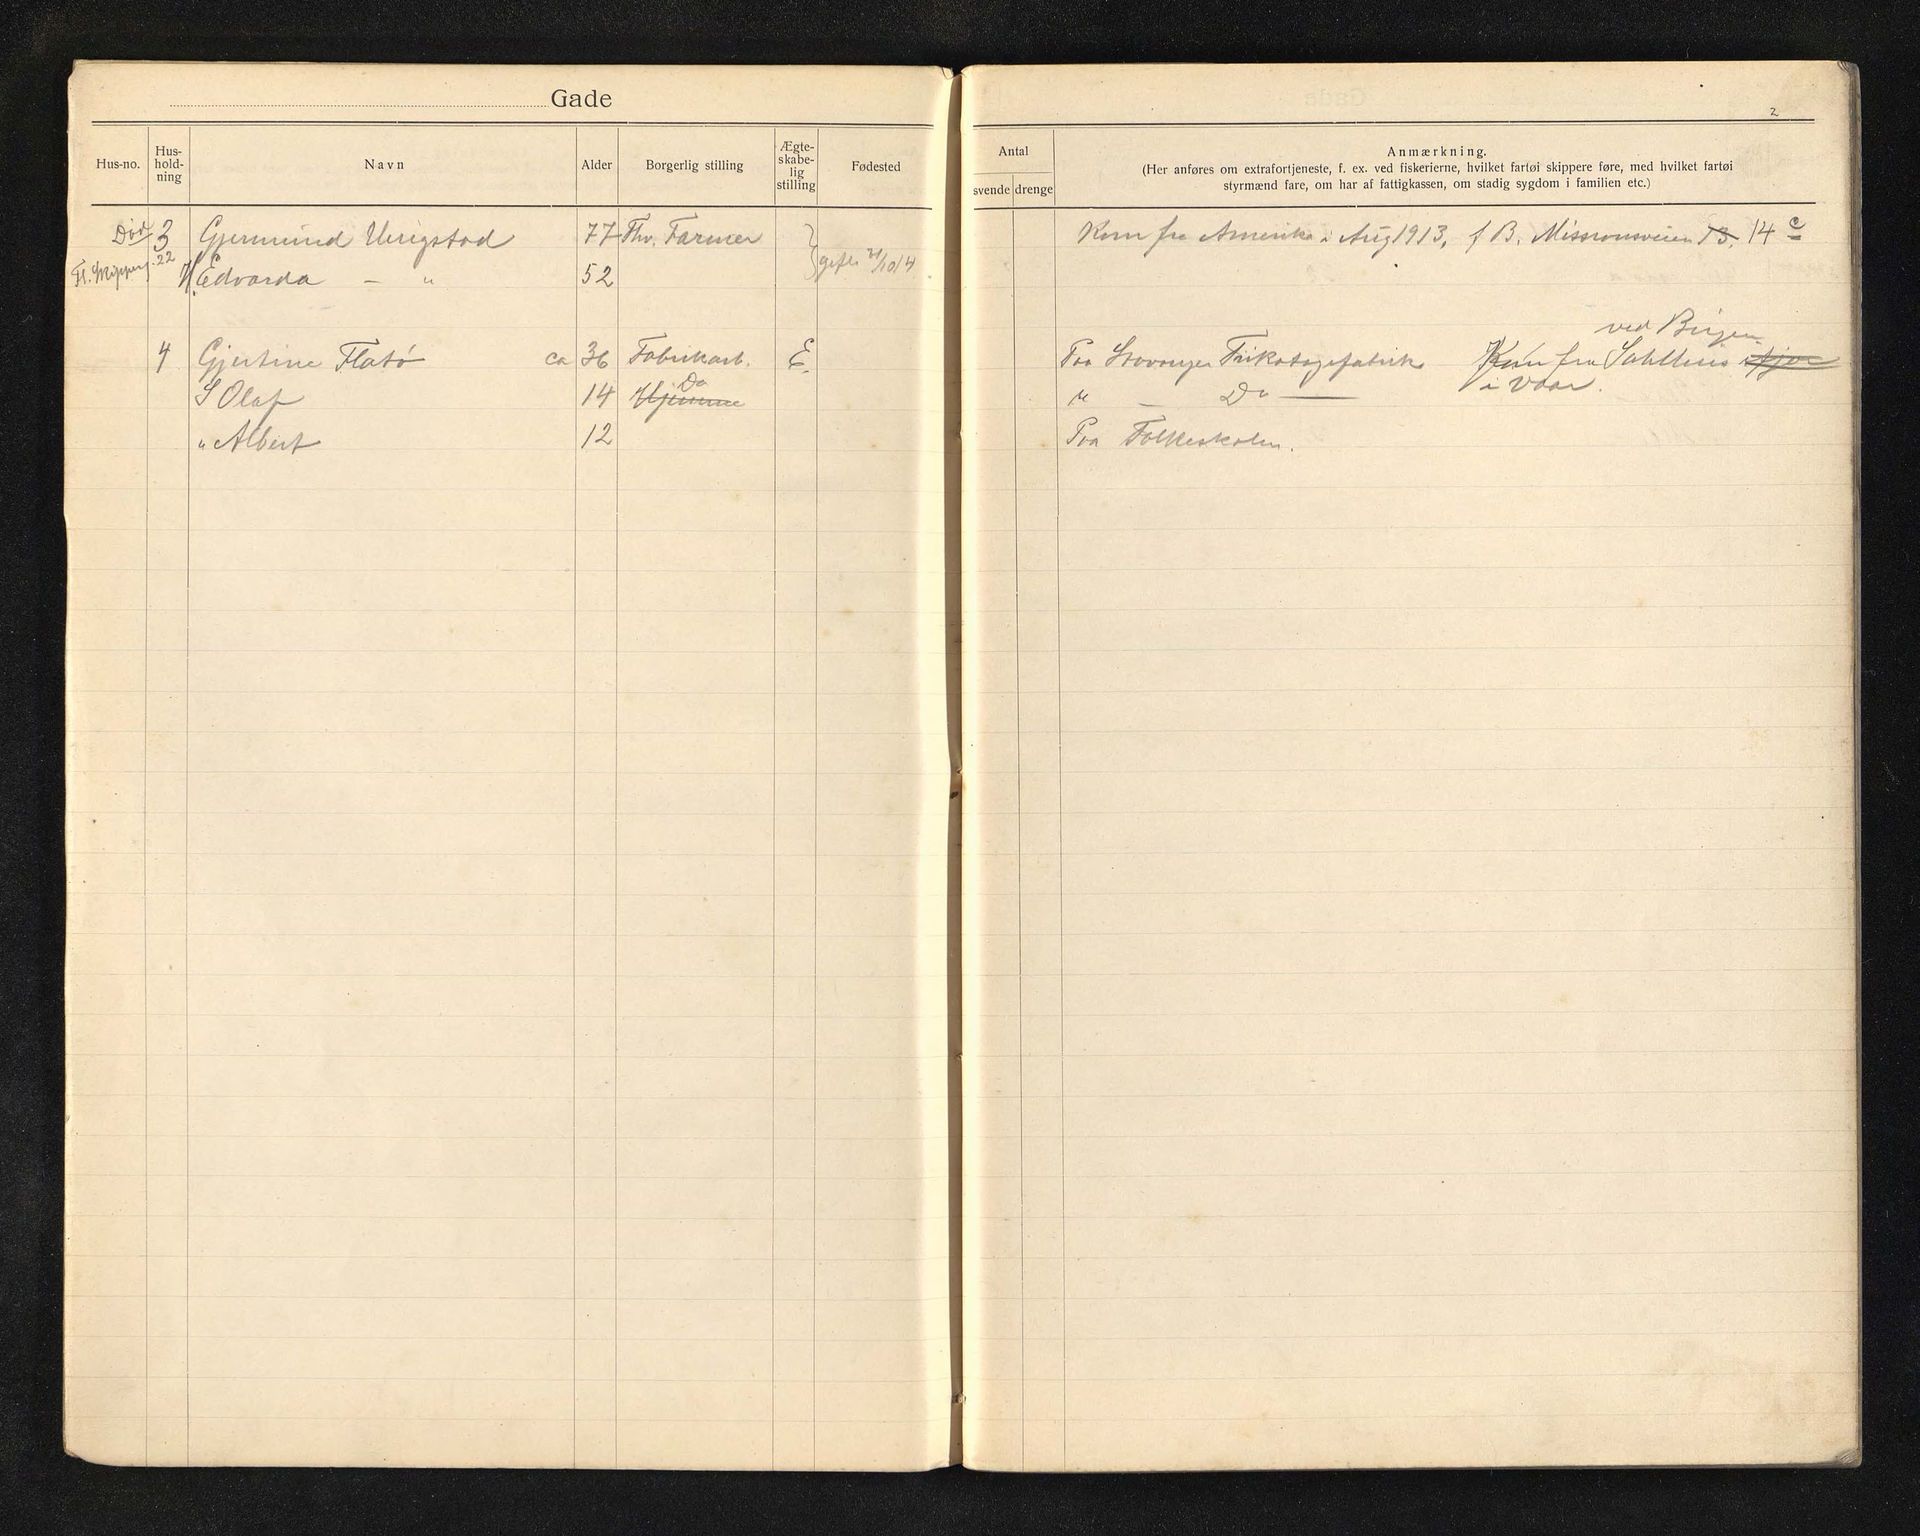 Gade
2
Hus-no.
Hus-
hold-
ning
Navn
Alder
Borgerlig stilling
Ægte-
skabe-
lig
stilling
Fødested
Antal
svende drenge
Anmærkning.
(Her anføres om extrafortjeneste, f. ex. ved fiskerierne, hvilket fartøi skippere føre, med hvilket fartøi
styrmænd fare, om har af fattigkassen, om stadig sygdom i familien etc.)
Död 3 Gjermund Urigstad 77 Fhv. Farmer Kom fra Amerika i Aug 1913, f B. Missionsveien 13. 14 c
Fl. Skipperg. 22 H. Edvarda — " 52 gift 21/10 14
ved Bergen
4 Gjertine Flatø ca 36 Fabrikarb. E. Paa Stavanger Trikotagefabrik Kom fra Salhus
i Vaar.
S Olaf 14 Hjemme Do " — Do —
" Albert 12 Paa Folkeskolen.